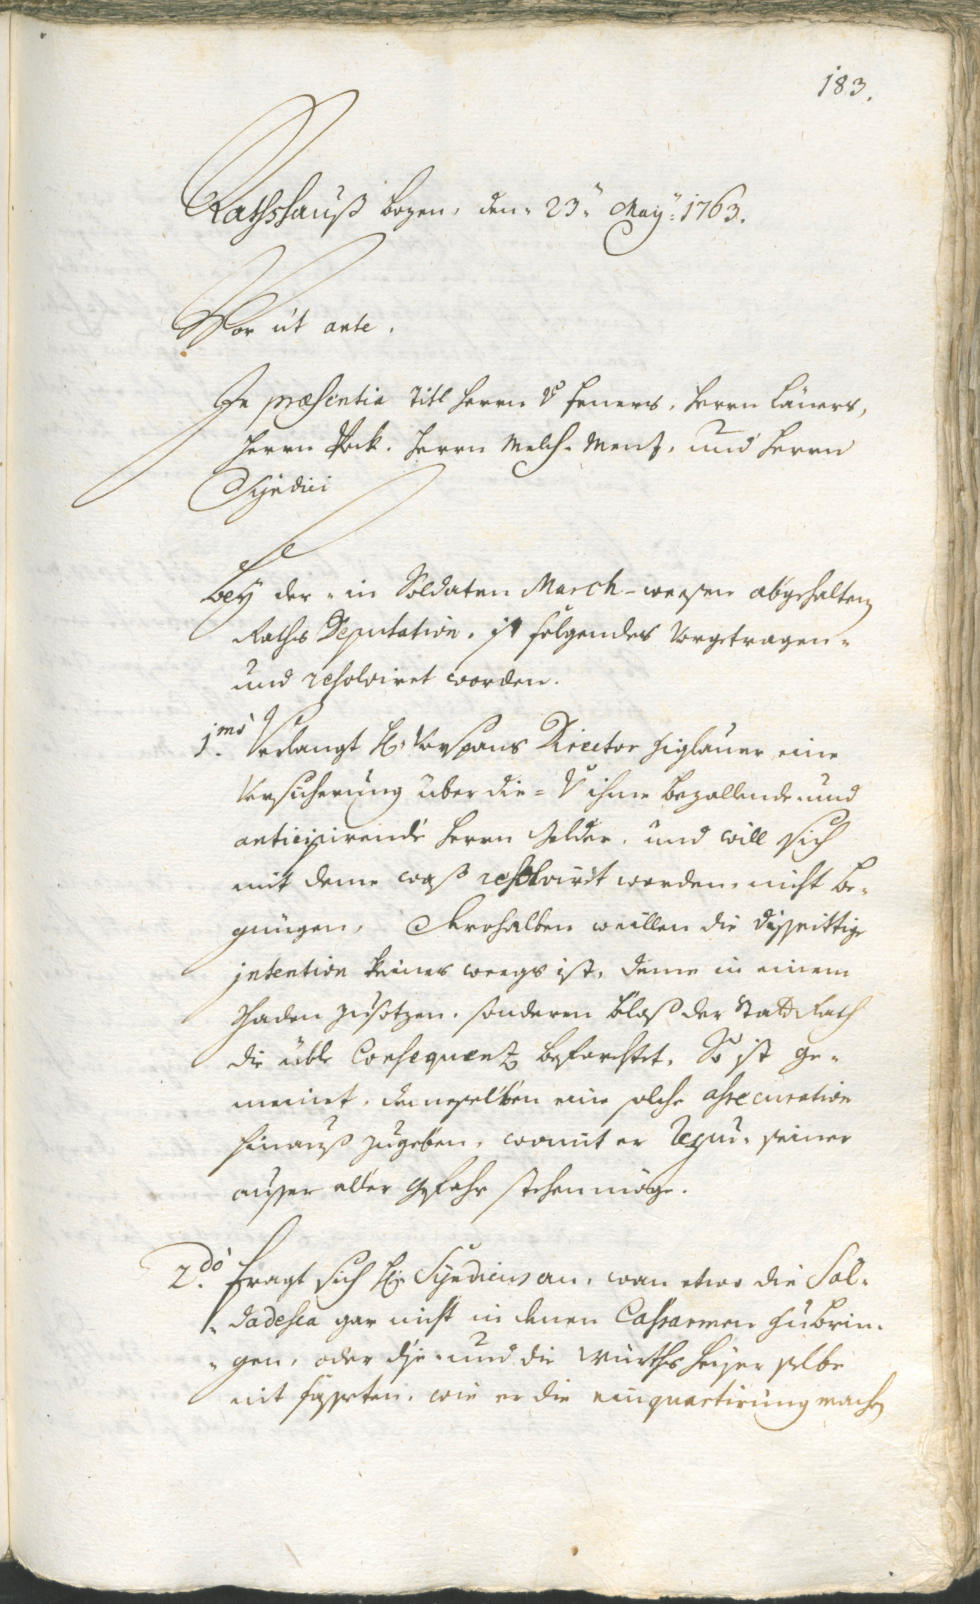 183.
Rathshauß Bozen, den 23.ten May: 1763.
Vor ut ante.
In præsentia Titl Herrn v Feners, Herrn Läners,
Herrn Pock. Herrn Melch. Menz, und Herrn
Syndici
Bey der in Soldaten March-weesen abgehalten
Raths Deputation. ist folgendes Vorgetragen-
und resolviret worden.
1.mo Verlangt H: Vorspans Director Higlauer eine
Versicherung über die = v ihme bezallende und
anticipirende Herrn Gelder. und will sich
mit deme waß resolvirt worden nicht be-
gnügen, derohalben weillen die disseittige
intention keines weegs ist, deme in einem
Schaden zusetzen. sonderen bloß der Statt Rath
die üble Consequenz beförchtet, So ist ge-
meint, demeselben eine solche assecuration
hinauß zugeben, womit er seiner
ausser aller Gefahr stehen möge.
2.do Fragt sich Hr: Syndicus an, wan etwo die Sol-
dadesca gar nicht in denen Cassarmen zubrin-
gen, oder die und die Würths heiser selbe
nit fasseten, wie er die einquartirung machen